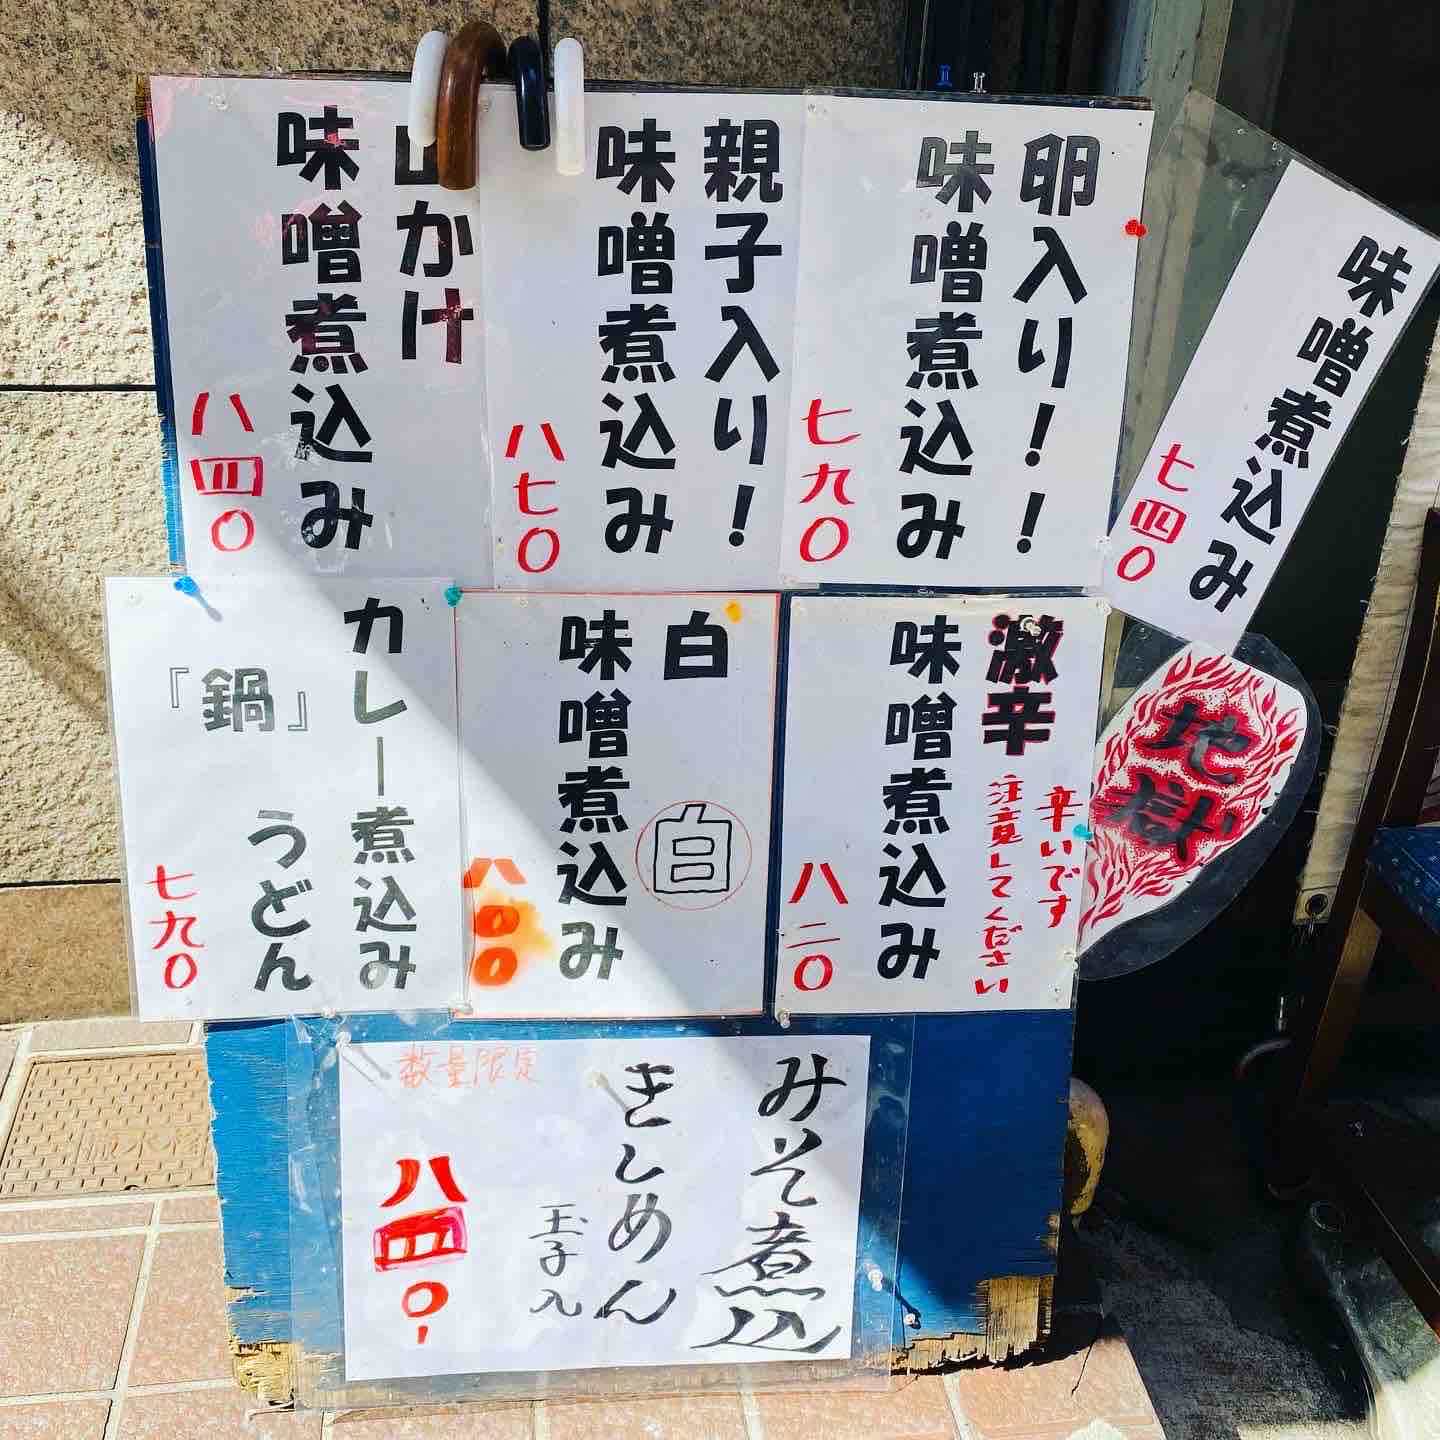 味噌煮込み
七四〇
卵入り！！
味噌煮込み
七九〇
親子入り！
味噌煮込み
八七〇
かけ
味噌煮込み
八四〇
地獄
激辛
辛いです
注意してください
味噌煮込み
八二〇
白
味噌煮込み
白
八〇〇
カレー煮込み
『鍋』うどん
七九〇
みそ煮込
きしめん
玉子入
数量限定
八四〇